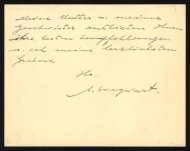 Meine Mutter u. meine
Geschwister entbieten Ihnen
ihre besten Empfehlungen
u. ich meine herzlichsten
Grüsse
Ihr